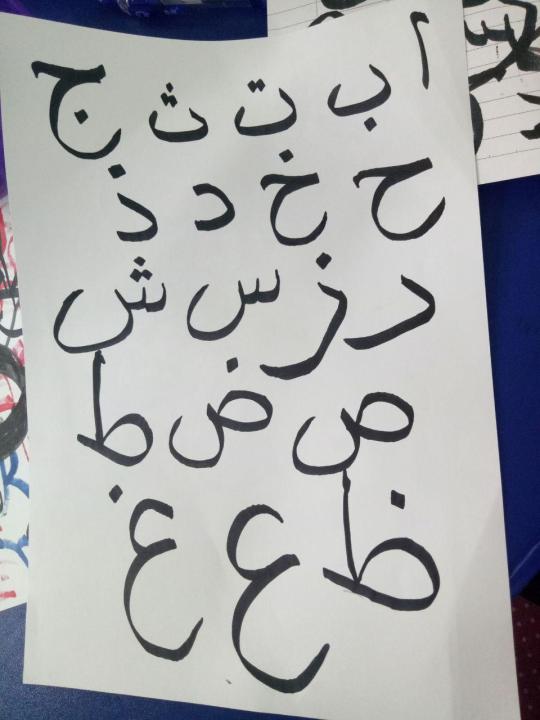 ا ب ت ث ج
ح خ د ذ
ر ز س ش
ص ض ط
ظ ع غ